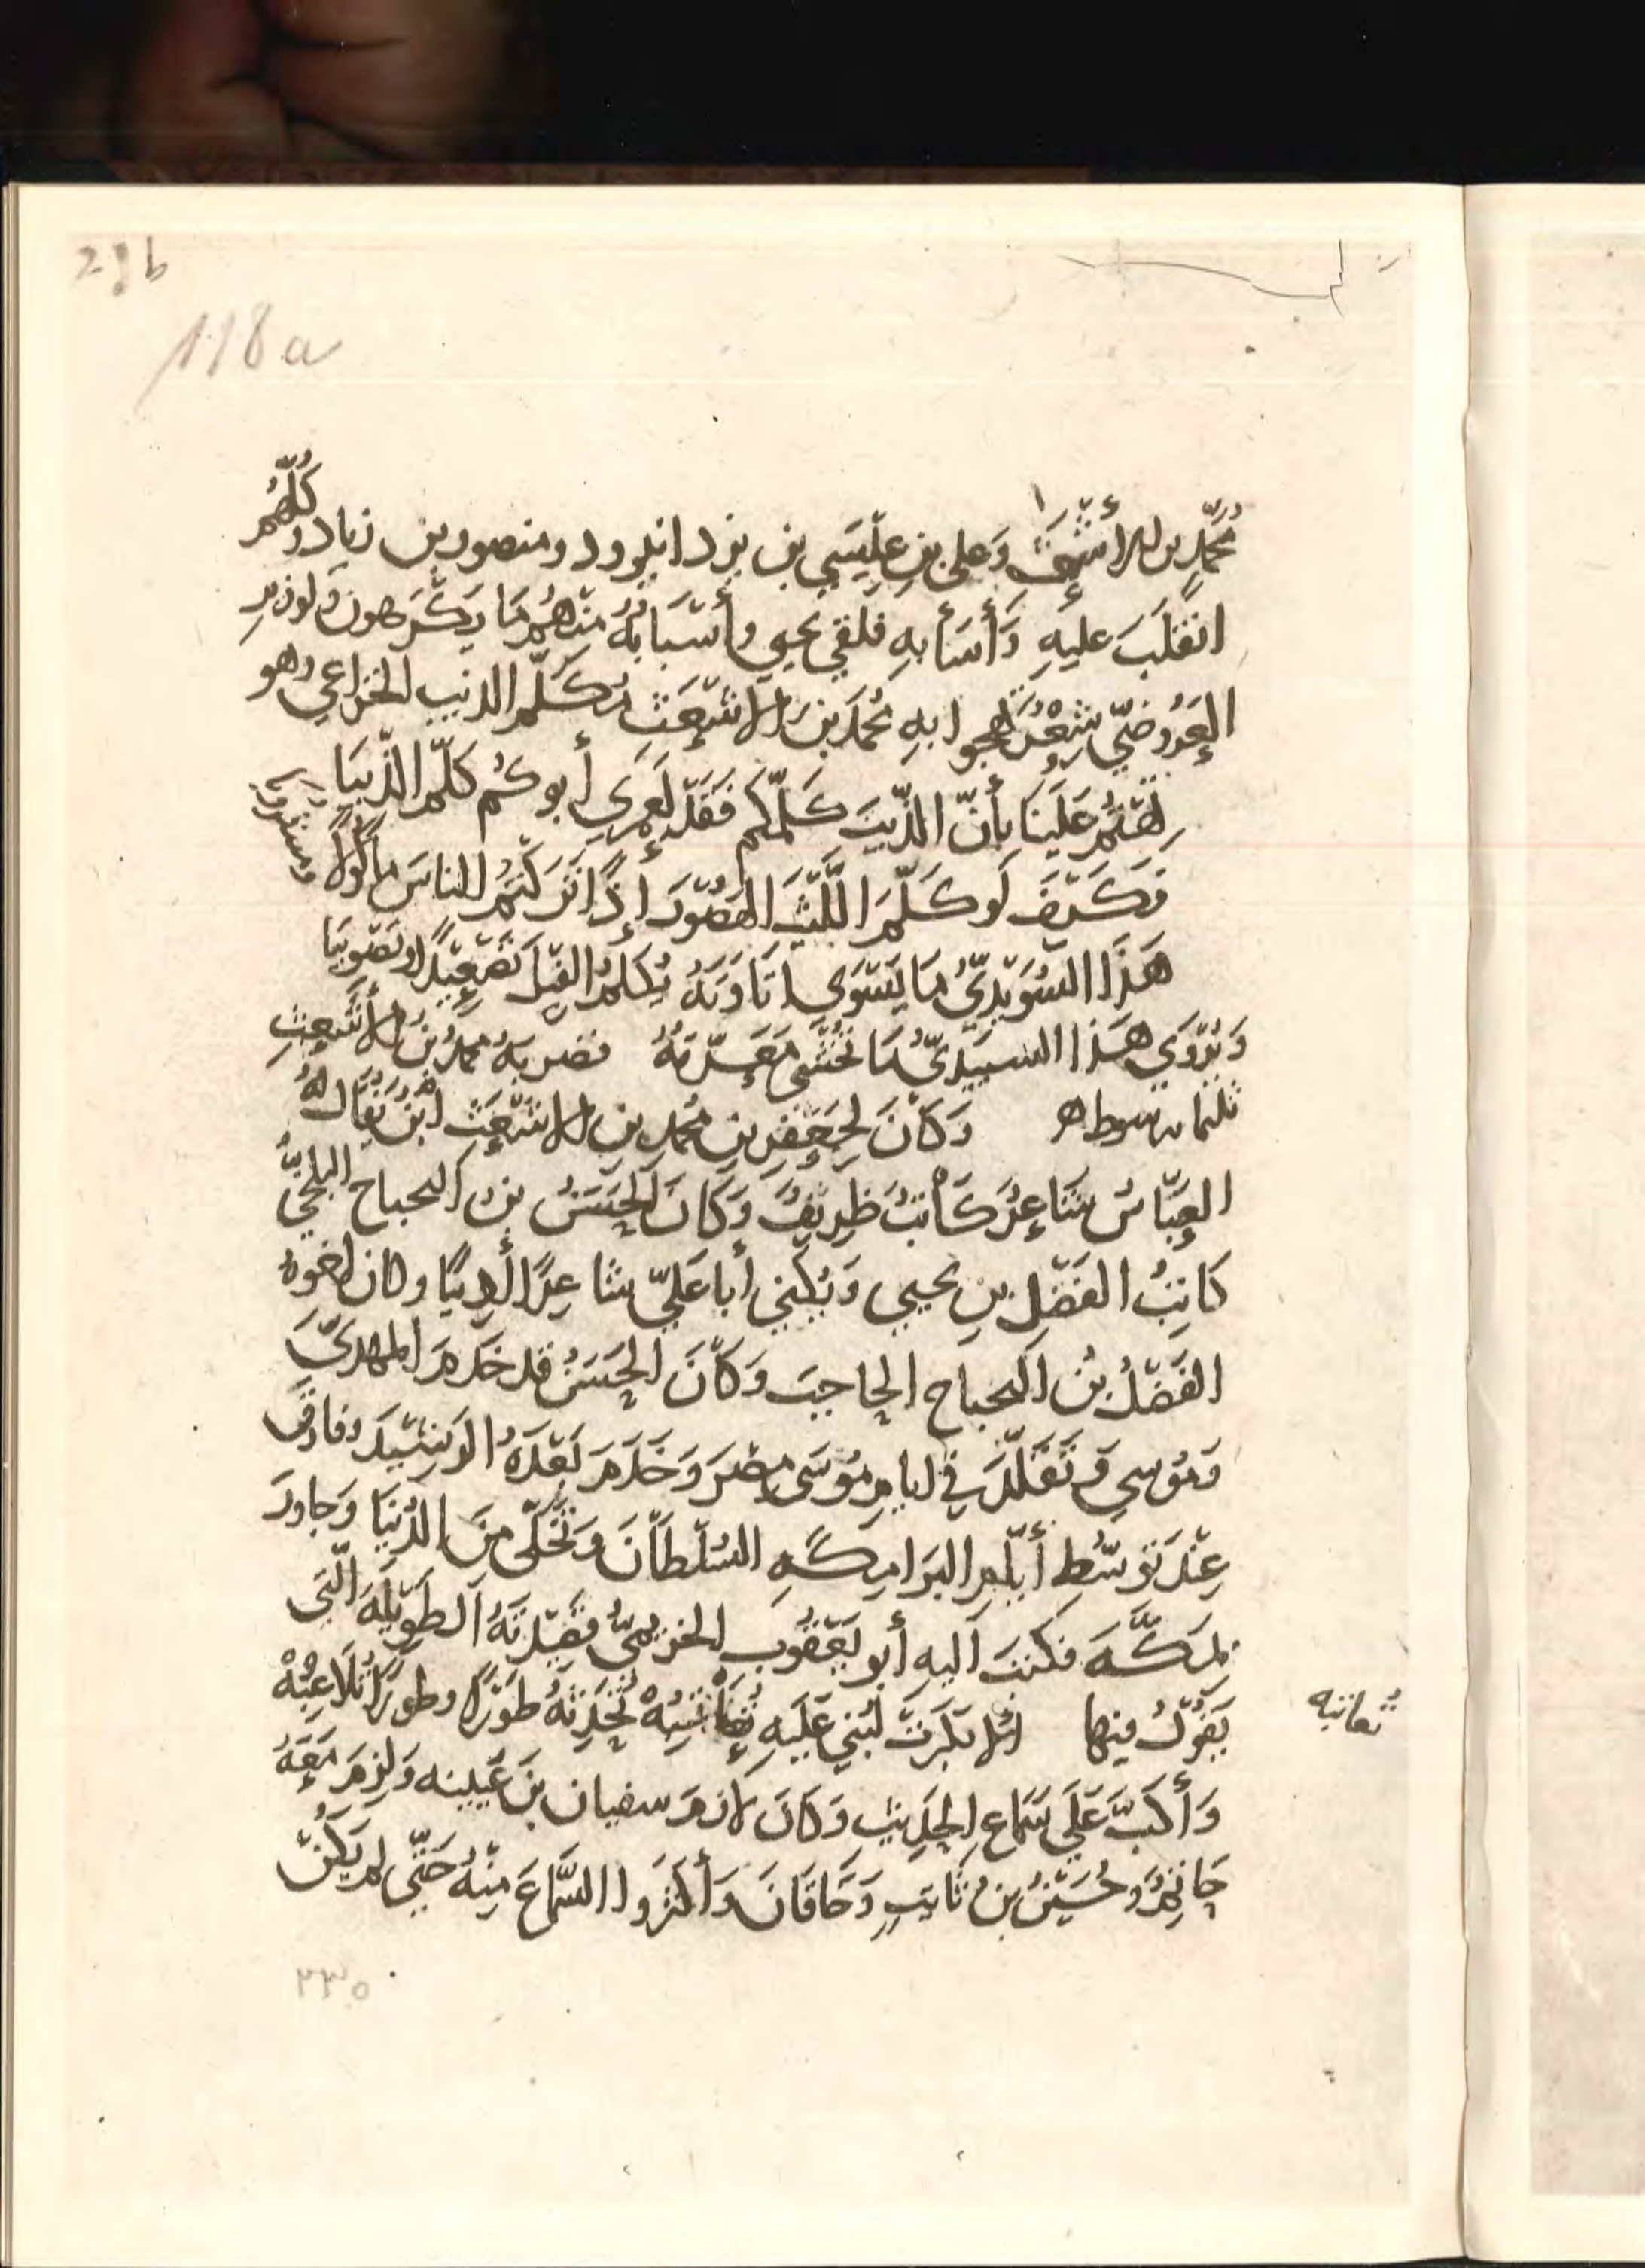 28b
118a
مُحَمَّدِ بن الأشعث وَعلى بن عِيسَي بن يزدانيرود ومنصور بن زياد وكُلُّهُم
انقلَبَ عليهِ وَأَسَأَ بهِ فلقي يحيي وأسْبَابُهُ مِنهُم مَا يَكْرَهون ولرزين
العَرُوضيّ شِعْرٌ يهجوا بهِ مُحَمّدَ بنَ الاشعَثِ مُكلّم الذيب الخزاعي وهو
تِهْتُمْ عَلَينَا بأنّ الذّيبَ كلّمَكم فَقَد لَعَمرِي أبوكُم كَلّم الذّيبَا
فكَيْفَ لَو كَلّمَ اللَّيْثَ الهَصُورَ إذًا تَرَكتُمُ الناسَ مأكُولًا ومشروبا
هَذَا السُوَيْدِيُّ مَا يَسْوَى إتَاوَتَهُ يُكلّمُ الفِيلَ تَصْعِيدًا وتَصْوِيبَا
وَيُرْوَي هَذا السبيديُّ مَا تُخْشَى مَعَرّتُهُ فضربهُ محمدُ بنُ الأشعثِ
ثلثمايه سوط هـ وَكَانَ لجَعْفرِ بنِ مُحمدِ بنِ الاشعَثِ ابْنٌ يُقَالُ لهُ
العبّاسُ شَاعِرٌ كَاتبٌ ظَرِيفٌ وَكَانَ الحَسَنُ بن البحباح البلخيُّ
كَاتِبُ الفَضْلِ بنِ يحيي وَيُكْني أبا عَليّ شاعِرًا أدِيبًا وكان اخوهُ
الفَضْلُ بنُ البحباح الحاجبَ وَكَانَ الحَسَنُ قد خَدَمَ المهديَّ
وَمُوسي وَتَقَلّدَ في ايامِ مُوسَى مِصْرَ وَخَدَمَ بَعْدَهُ الرَشِيدَ وفارق
عِنْدَ توَسّطِ أيّامِ البَرَامِكَهِ السُلْطَانَ وَتَخَلّى مِنَ الدُنيَا وَجَاورَ
بِمَكَّهَ فكتبَ اليهِ أبو يَعْقُوبَ الخريميُّ قَصِيدَتَهُ الطَوِيلَهَ الّتي
يَقُولُ فيها ألا بَكرَتْ لُبْني عَلَيهِ تُعَاتبُهْ تُحَذِّرُهُ طَوْرًا وطورًا تُلَاعِبُهْ
تعاتبه
وَأَكَبَّ عَلَي سَمَاعِ الحَدِيثِ وَكَانَ لازمَ سفيان بنَ عُيينه وَلزِمَ مَعَهُ
جَانِدٌ وحُسَينُ بنُ ثَابتٍ وَخَاقَانَ وَأكثرَوا السَّمَاعَ مِنْهُ حَتّى لم يَكُنْ
٢٣٥